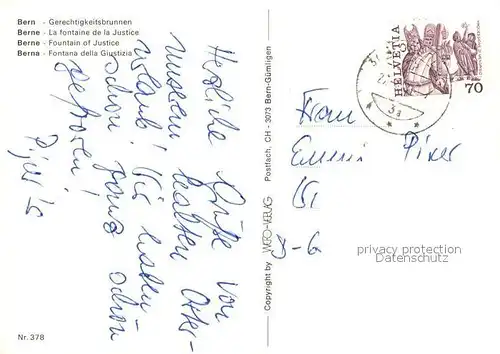 Bern - Gerechtigkeitsbrunnen
Berne - La fontaine de la Justice
Berne - Fountain of Justice
Berna - Fontana della Giustizia
Herzliche Grüße von
unserem kalten Oster-
urlaub! Wir haben
schon ganz schön
gefroren!
Nr. 378
Copyright by WERO-VERLAG Postfach, CH - 3073 Bern-Gümligen
HELVETIA
70
Frau
privacy protection
Datenschutz